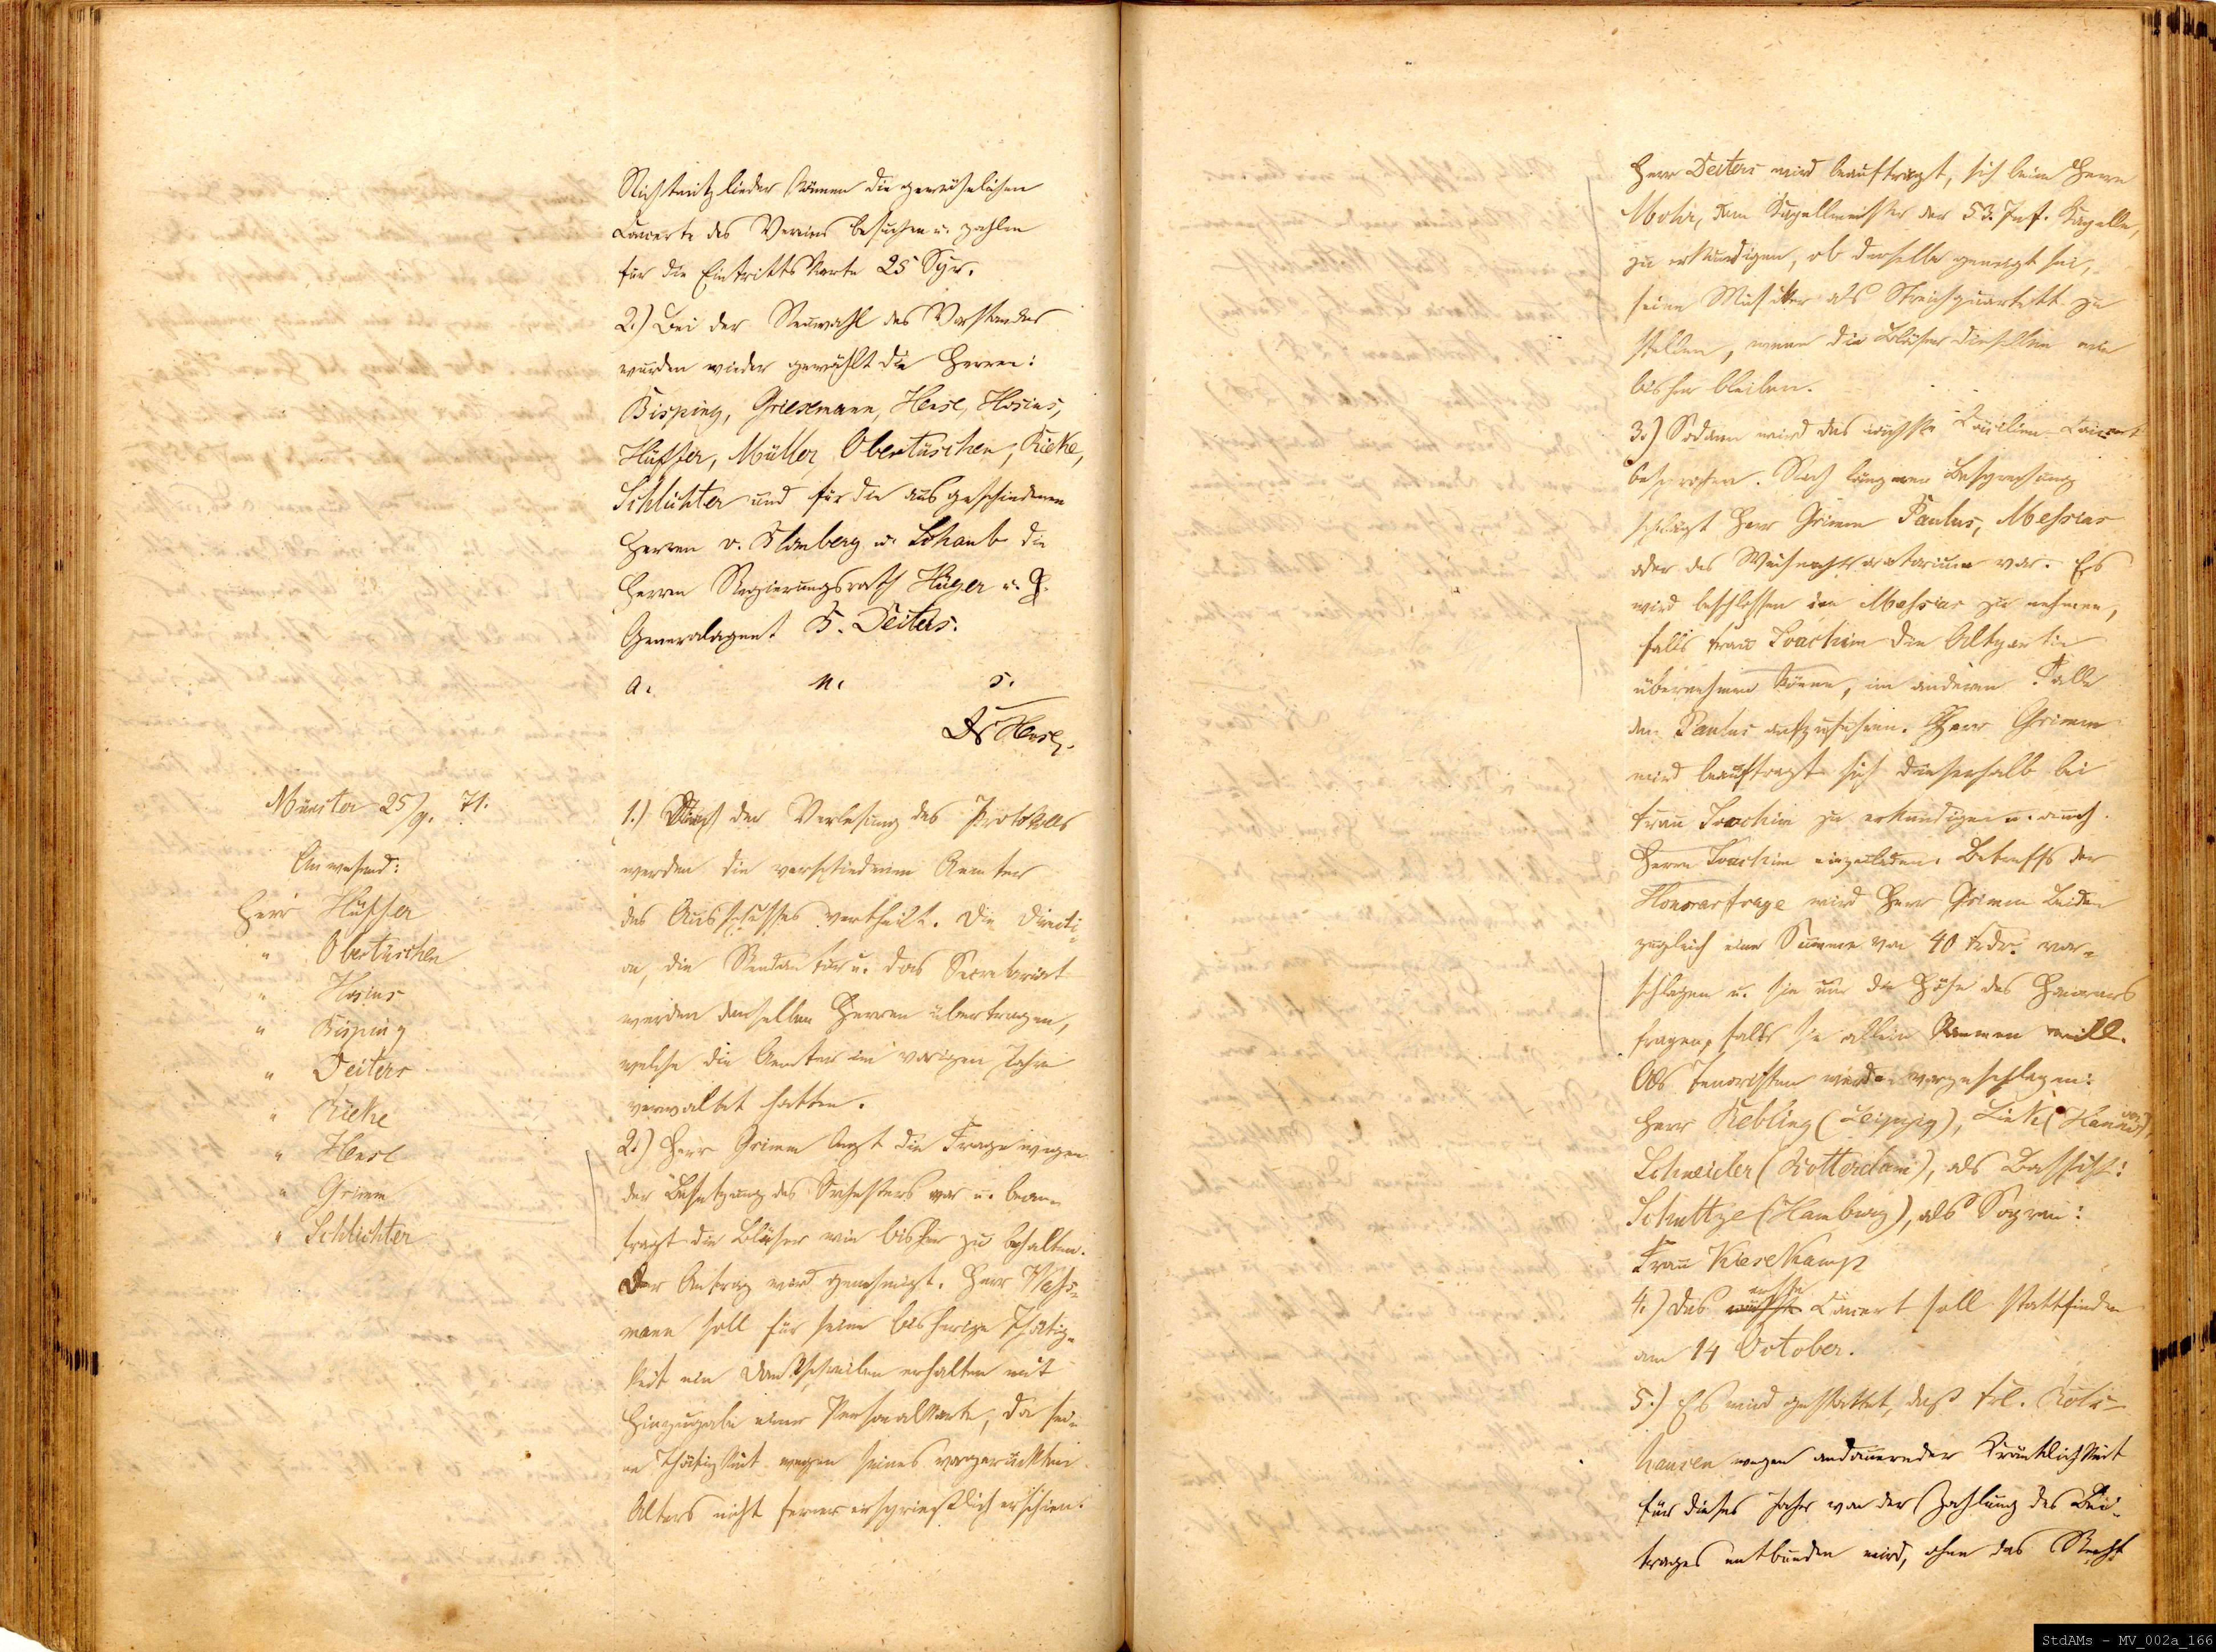 Nichtmitglieder können die gewöhnlichen
Concerte des Vereins besuchen u. zahlen
für die Eintrittskarte 25 Sgr.
2.) Bei der Neuwahl des Vorstandes
wurden wieder gewählt die Herren:
Bisping, Griesemann, Hense, Hosius,
Hüffer, Müller, Obertüschen, Rieke,
Schlichter und für die ausgeschiedenen
Herren v. Olmberg u. Schaub die
Herren Regierungsrath Hüger u. H.
Generalagent F. Deiters.
a. u. s.
Dr Hense.
Münster 25/9. 71.
Anwesend:
Herr Hüffer
" Obertüschen
" Hosius
" Bisping
" Deiters
" Rieke
" Hense
" Grimm
" Schlichter
1.) Nach der Verlesung des Protokolls
werden die verschiedenen Aemter
des Ausschusses vertheilt. Die Directi-
on, die Rendantur u. das Secretariat
werden denselben Herren übertragen,
welche die Aemter im vorigen Jahre
verwaltet hatten.
2.) Herr Grimm legt die Frage wegen
der Besetzung des Orchesters vor u. bean-
tragt die Bläser wie bisher zu behalten.
Der Antrag wird genehmigt. Herr Wess-
mann soll für seine bisherige Thätig-
keit ein Dankschreiben erhalten mit
Hinzugabe einer Personalkarte, da sei-
ne Thätigkeit wegen seines vorgerückten
Alters nicht ferner ersprießlich erschien.
Herr Deiters wird beauftragt, sich beim Herrn
Mohr, dem Kapellmeister der 53. Inf. Kapelle,
zu erkundigen, ob derselbe geneigt sei,
seine Musiker als Streichquartett zu
stellen, wenn die Bläser dieselben wie
bisher bleiben.
3.) Sodann wird das nächste Cäcilien-Concert
besprochen. Nach längerer Besprechung
schlägt Herr Grimm Paulus, Messias
oder das Weihnachtsoratorium vor. Es
wird beschlossen den Messias zu nehmen,
falls Frau Joachim die Altpartie
übernehmen könne, im anderen Falle
den Paulus aufzuführen. Herr Grimm
wird beauftragt sich dieserhalb bei
Frau Joachim zu erkundigen u. auch
Herrn Joachim einzuladen. Betreffs der
Honorarfrage wird Herr Grimm Beiden
zugleich eine Summe von 40 Frdr. vor-
schlagen u. sie um die Höhe des Honorars
fragen, falls sie allein kommen will.
Als Tenoristen werden vorgeschlagen:
Herr Rebling (Leipzig), Link (Hannover),
Schneider (Rotterdam), als Bassist:
Schultze (Hamburg), als Sopran:
Frau Kiesekamp
4.) Das nächste erste Concert soll stattfinden
am 14 October.
5.) Es wird gestattet, daß Frl. Röls-
hausen wegen andauernder Kränklichkeit
für dieses Jahr von der Zahlung des Bei-
trages entbunden wird, ohne das Recht
StdAMs - MV_002a_166